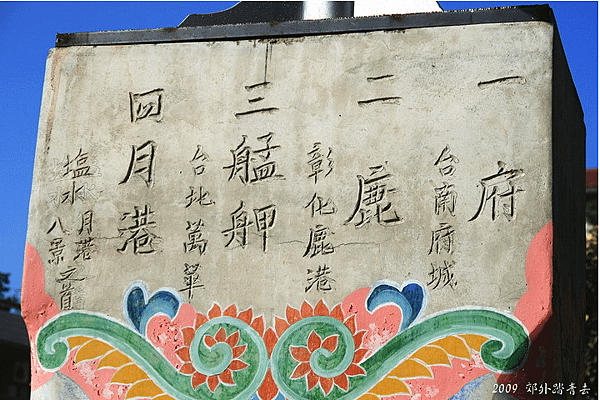 一府
台南府城
二鹿
彰化鹿港
三艋舺
台北萬華
四月港
塩水月港
八景之首
2009 郊外踏青去